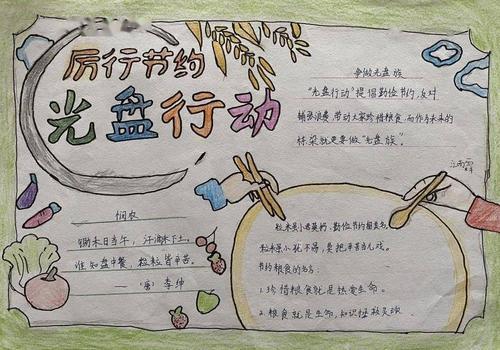 厉行节约
光盘行动
争做光盘族
“光盘行动”提倡勤俭节约,反对
铺张浪费,带动大家珍惜粮食,而作为未来的
栋梁就更要做“光盘族”。
悯农
锄禾日当午，汗滴禾下土。
谁知盘中餐，粒粒皆辛苦。
——（唐）李绅
粒米虽小君莫扔，勤俭节约留美名。
粒米虽小犹不易，
节约粮食的名言：
1. 珍惜粮食就是热爱生命。
2. 粮食就是生命，知识拯救灵魂